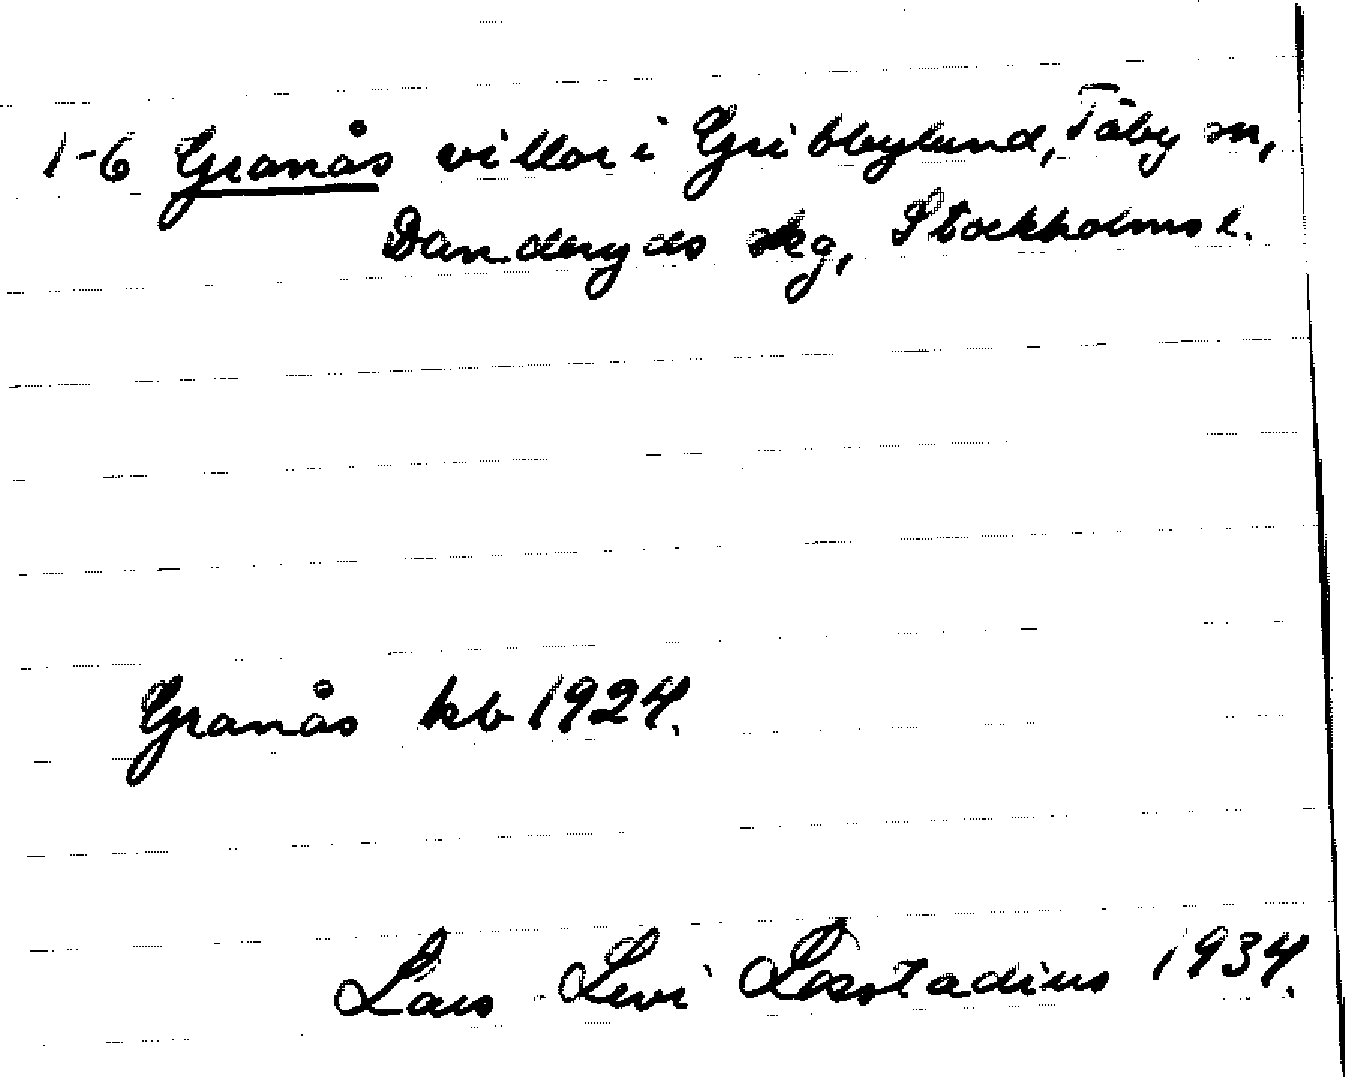 1-6 Granås villor i Gribbylund, Täby sn,
Danderyds skg, Stockholms l.
Granås kb 1924.
Lars Levi Læstadius 1934.